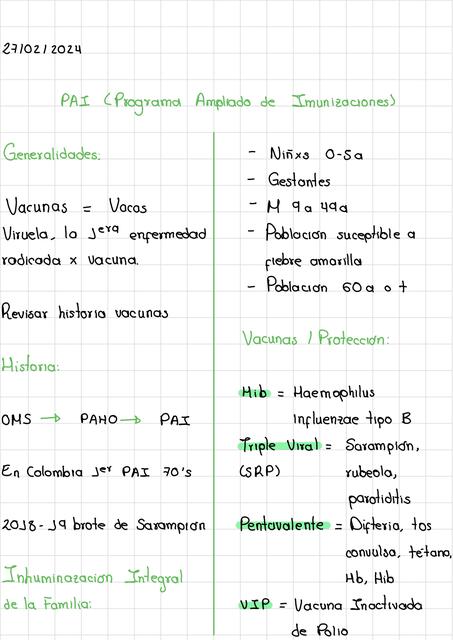 27/02/2024
PAI (Programa Ampliado de Imunizaciones)
Generalidades:
Vacunas = Vacas
Viruela, la 1era enfermedad
radicada x vacuna.
Revisar historia vacunas
Historia:
OMS → PAHO → PAI
En Colombia 1er PAI 70's
2018-19 brote de Sarampión
Inhuminazación Integral
de la Familia:
- Niñxs 0-5a
- Gestantes
- M 9a 49a
- Población suceptible a
fiebre amarilla
- Población 60a o +
Vacunas / Protección:
Hib = Haemophilus
Influenzae tipo B
Triple Viral = Sarampión,
(SRP) rubeola,
parotiditis
Pentavalente = Difteria, tos
convulsa, tétano,
Hb, Hib
VIP = Vacuna Inactivada
de Polio